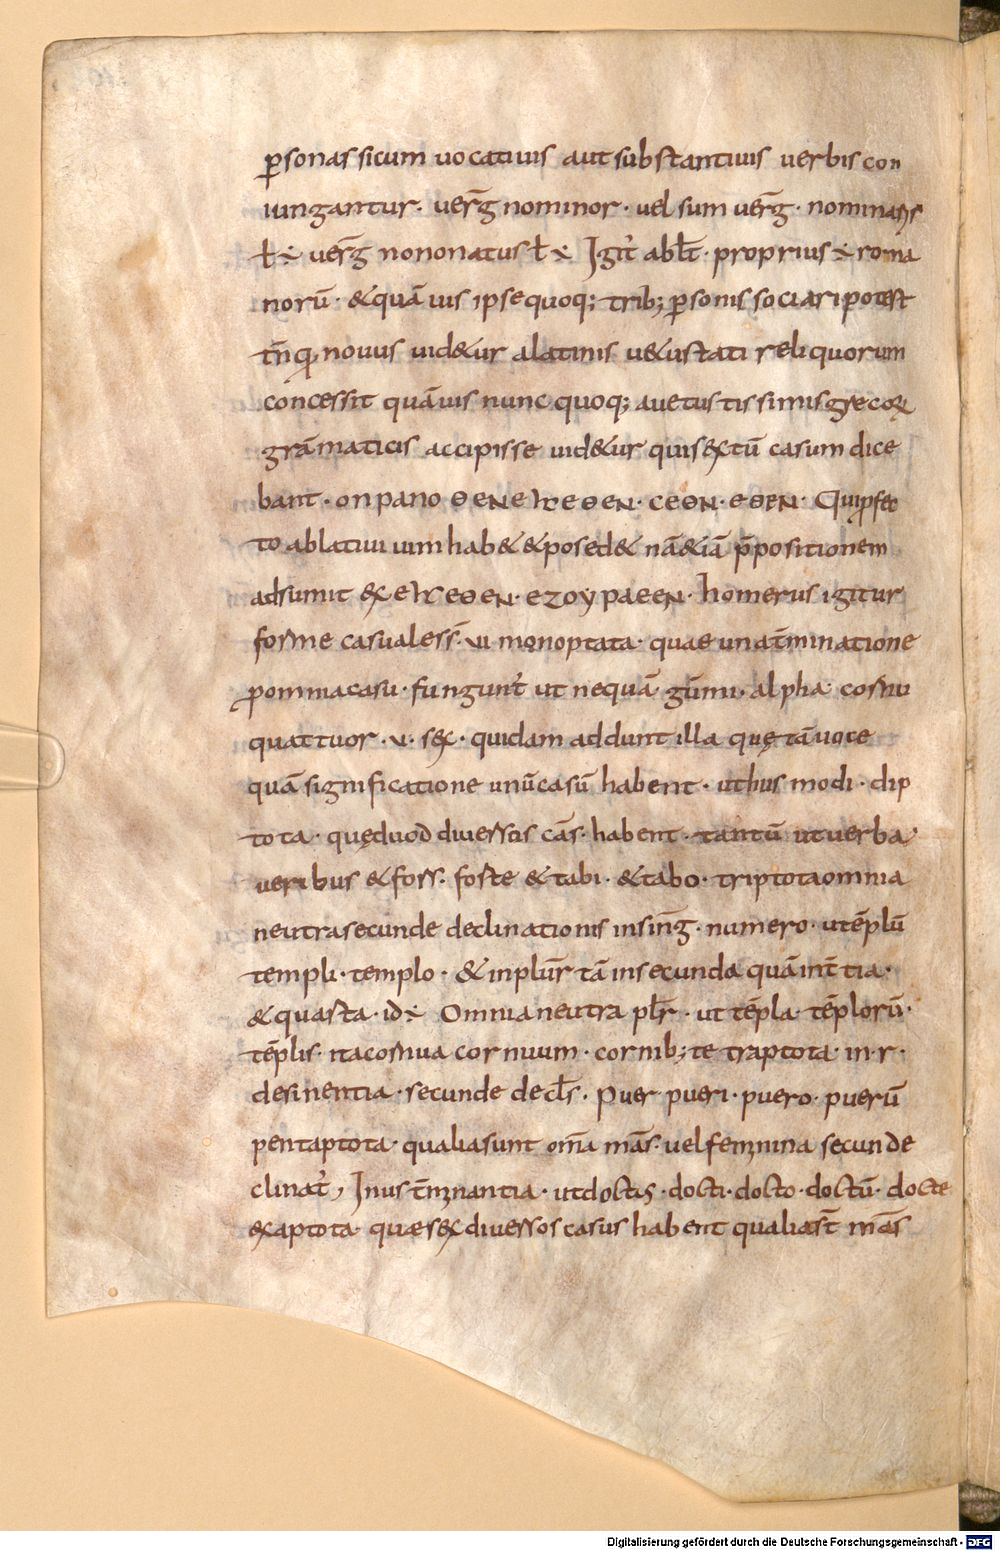 ꝑsonas sicum vocativis aut substantivis verbis con
iungantur · verḡ nominor · vel sum verḡ · nominaris
ƚ ÷ verḡ nononatus ƚ ÷ Igit᷑ abƚt · proprius ÷ roma
norū · & quāvis ipse quoq; trib; ꝑsonis sociari potest
tn̄q, novus vid&ur alatinis v&ustati reliquorum
concessit quāvis nunc quoq; avetustissimis grecoꝝ
grāmaticis accipisse vid&ur qui sextū casum dice
bant · onpano ΘENEƕEΘEN · CEΘN · EΘEN · Qui ꝓfec
to ablativi vim hab& & posed& nā&iā p̄positionem
adsumit ex EƕEΘEN · EZOYPAEEN · homerus igitur
forme casuales s̄ · vi monoptata · quae una t̄minatione
ꝓomnia casu · fungunt᷑ ut nequā · gūmi · alpha · cornu
quattuor · v · sex · quidam addunt illa quę tā voce
quā significatione unū casū habent · ut huius modi · dip
tota · quę duos diversos cās · habent · tantū ut verba
veribus & fors · forte & tabi · & tabo · triptota omnia
neutra secunde declinationis in sinḡ · numero · ut tēplū
templi · templo · & in plūr tā in secunda quā in t̄tia ·
& quarta · id ÷ Omnia neutra pƚr · ut tēpla tēplorū ·
tēplis · ita cornua cornuum · cornib; te traptota · in · r ·
desinentia · secunde decƚs · Puer pueri · puero · puerū
pentaptota · qualia sunt om̄a mās · vel feminina secunde
clinat᷑, In us t̄minantia · ut doctus · docti · docto · doctū · docte
exaptota · quae sex diversos casus habent qualia st̄ mās
Digitalisierung gefördert durch die Deutsche Forschungsgemeinschaft - DFG